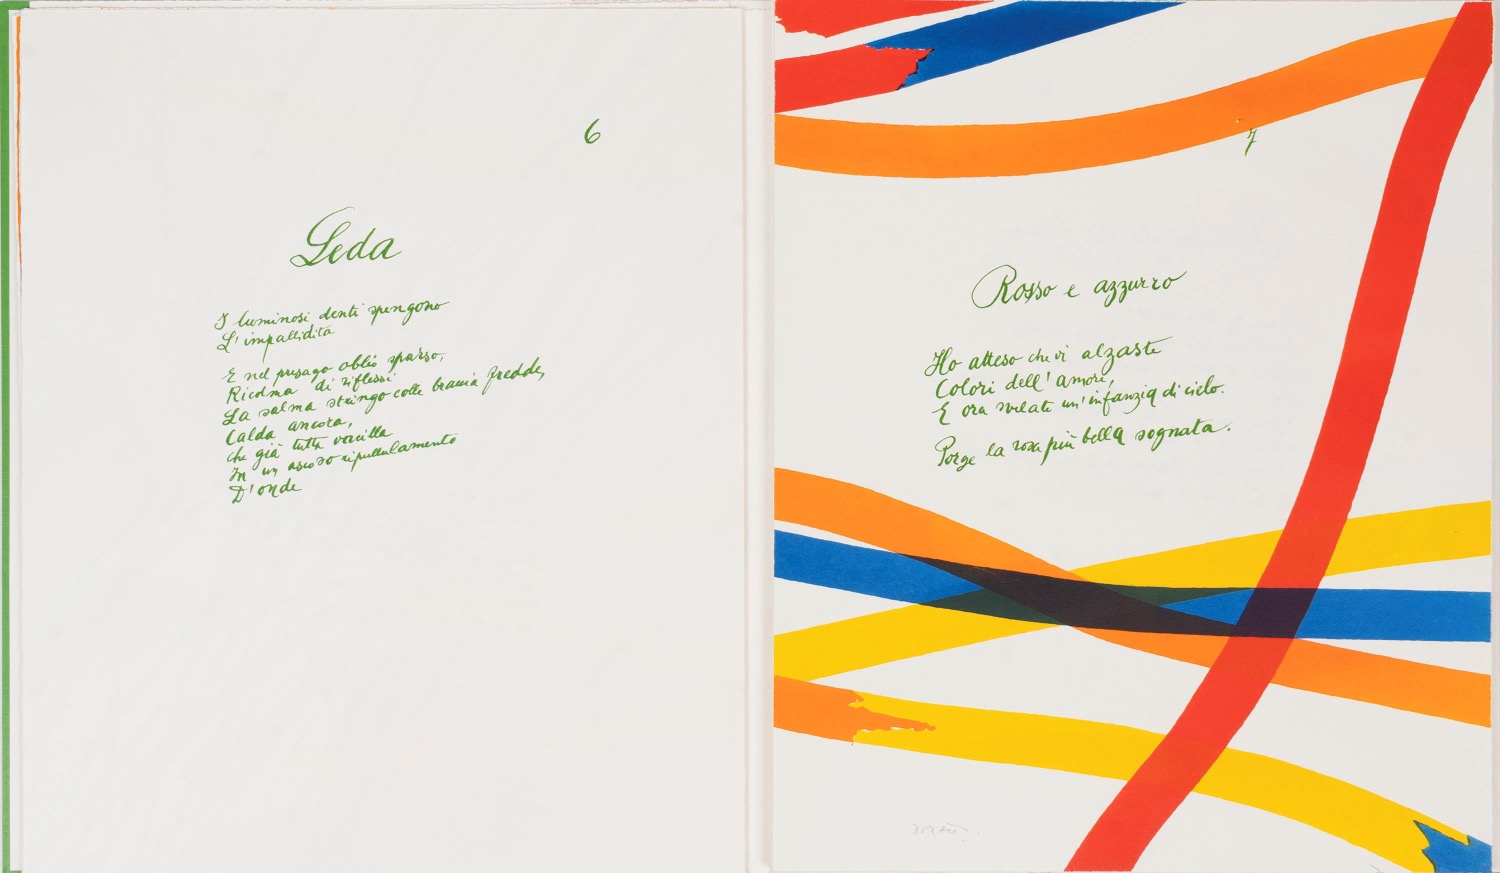 6
Leda
I luminosi denti spengono
L'impallidita
E nel presago oblìo sparso,
Ricolma di riflessi
La salma stringo colle braccia fredde,
Calda ancora,
che già tutta vacilla
In un ascoso ripullulamento
D'onde
7
Rosso e azzurro
Ho atteso che vi alzaste
Colori dell'amore,
E ora svelate un'infanzia di cielo.
Porge la rosa più bella sognata.